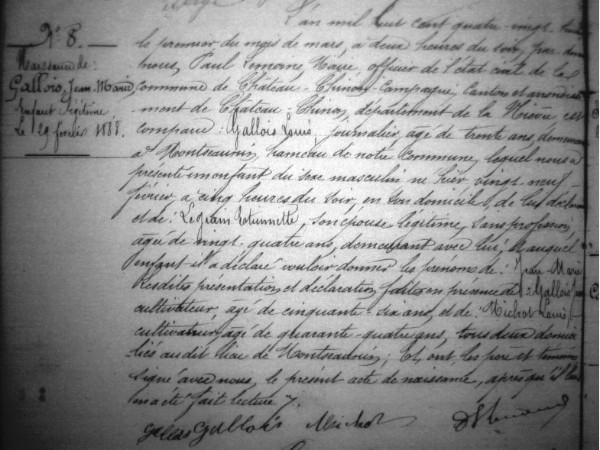 N° 8.
Naissance de:
Gallois, Jean-Marie
Enfant légitime
Le 29 février 1888.
L'an mil huit cent quatre-vingt-huit
le premier du mois de mars, à deux heures du soir, par devant
nous, Paul Lemoine Maire, officier de l'état civil de la
commune de Château-Chinon-Campagne, canton et arrondisse
ment de Château-Chinon, département de la Nièvre est
comparu: Gallois Louis, journalier, âgé de trente ans, demeurant
à Montsaunin, hameau de notre commune, lequel nous a
présenté un enfant du sexe masculin né hier vingt-neuf
février, à cinq heures du soir, en son domicile, de lui déclarant
et de: Legrain Etiennette, son épouse légitime, sans profession,
âgée de vingt-quatre ans, demeurant avec lui; auquel
enfant il a déclaré vouloir donner les prénoms de: Jean-Marie
Lesdites présentation et déclaration faites en présence de: Gallois
cultivateur, âgé de cinquante-six ans, et de: Michot Louis,
cultivateur, âgé de quarante-quatre ans, tous deux domici
liés au dit lieu de; Et, ont les père et témoins
signé avec nous, le présent acte de naissance, après qu'il leur
en a été fait lecture.
Gallois Michot